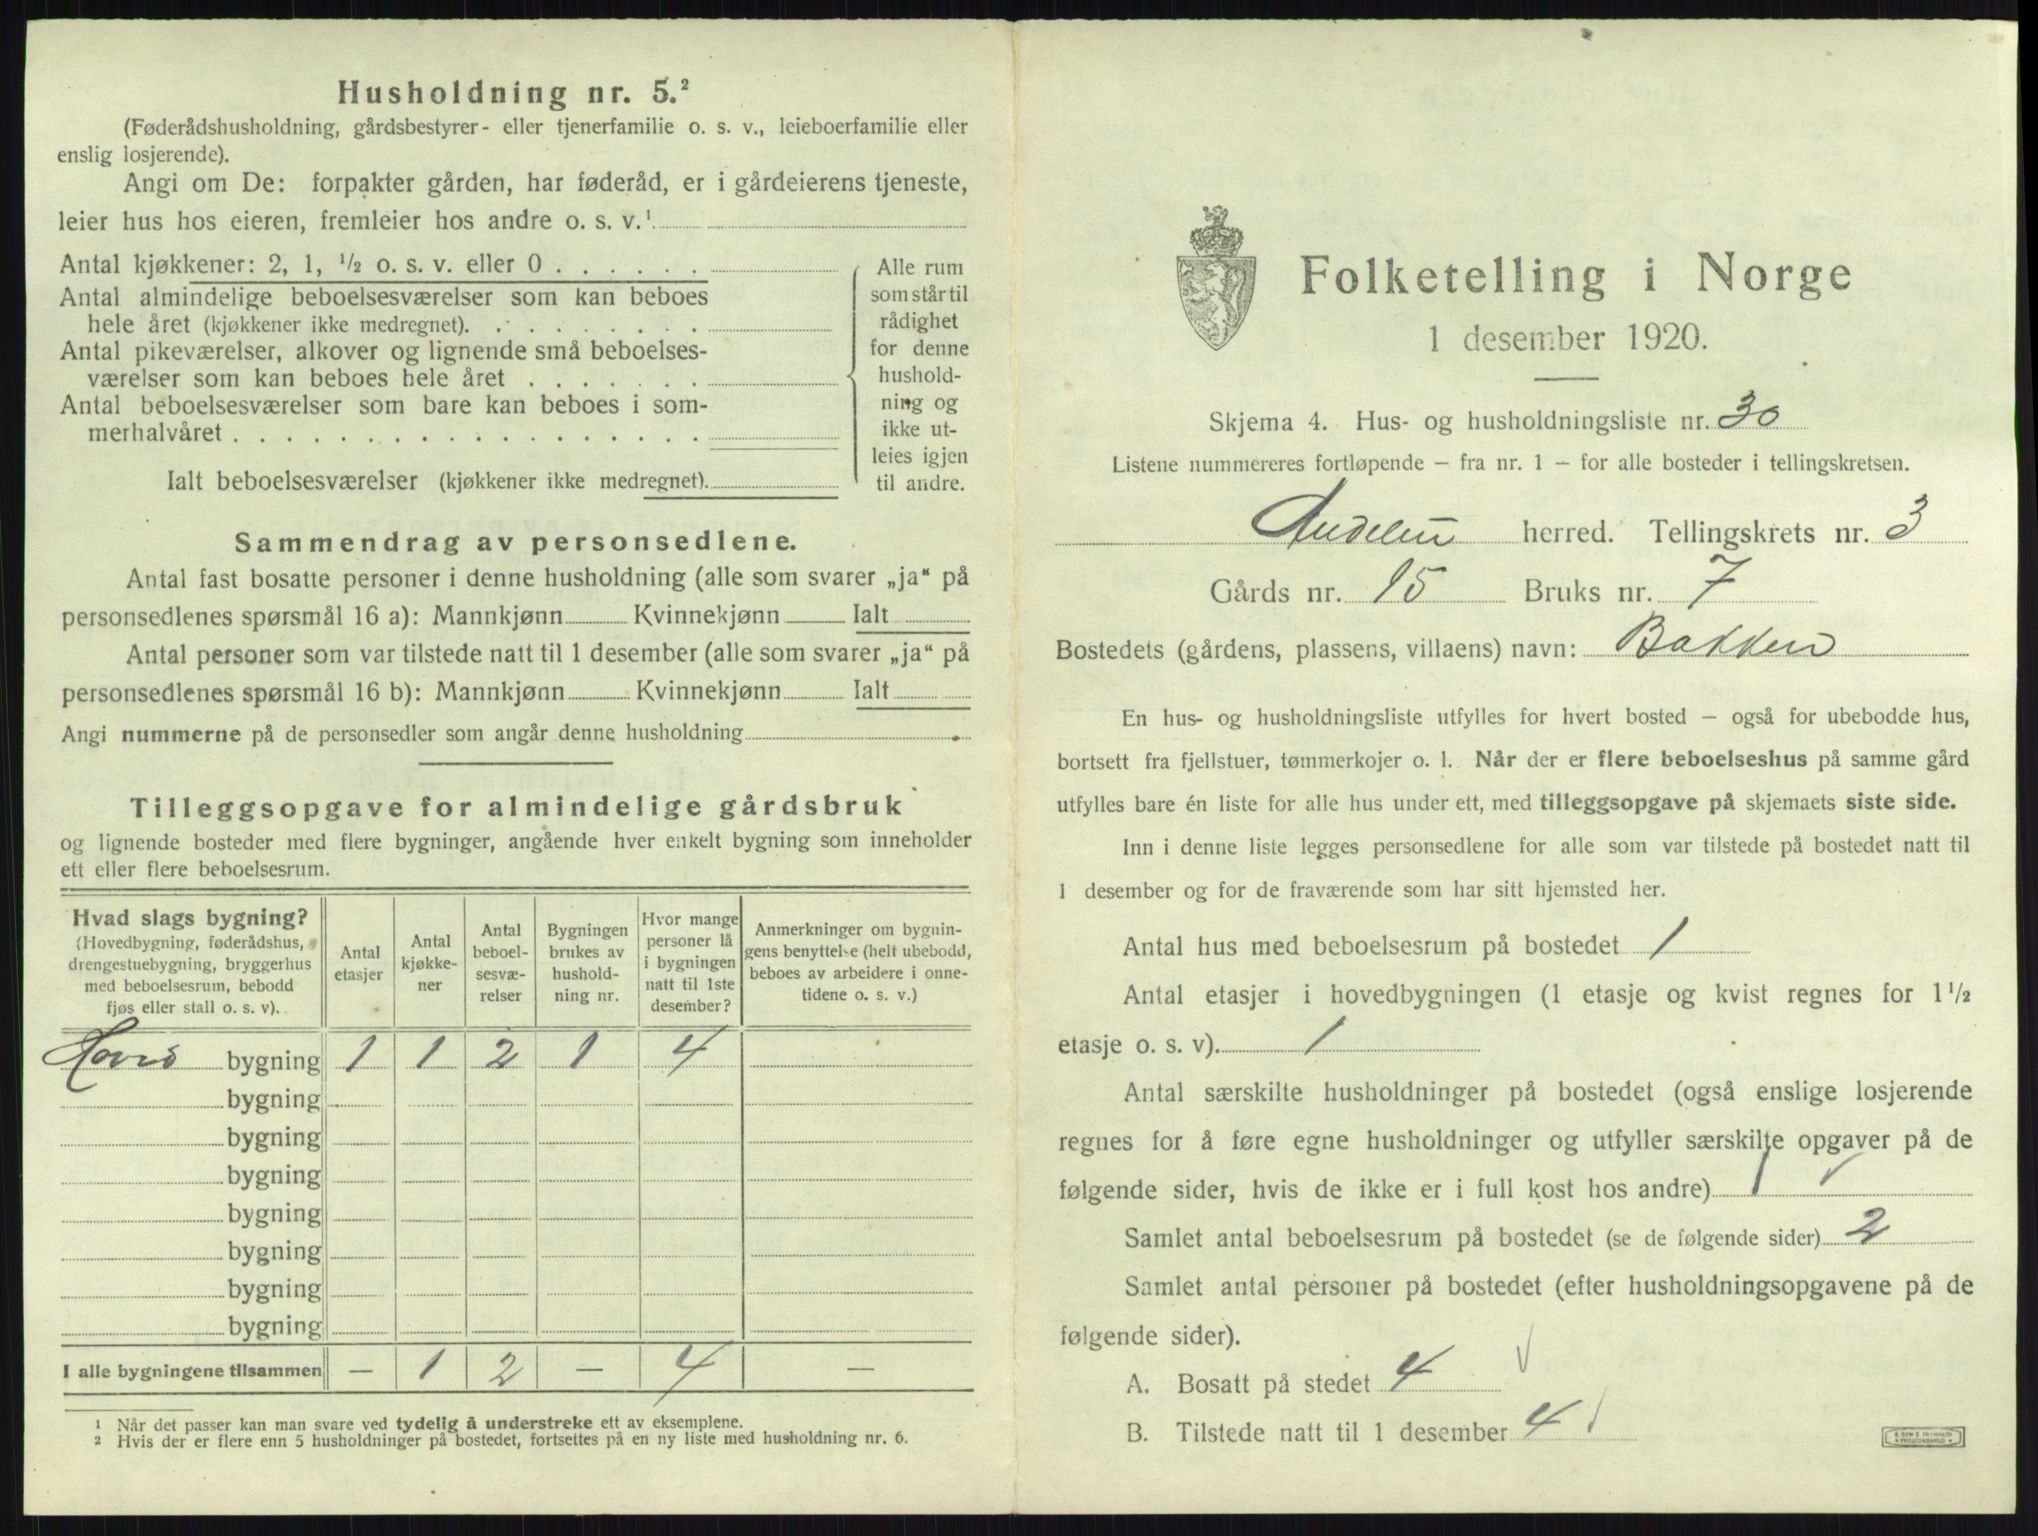 Husholdning nr. 5.²
(Føderådshusholdning, gårdsbestyrer- eller tjenerfamilie o. s. v., leieboerfamilie eller
enslig losjerende).
Angi om De: forpakter gården, har føderåd, er i gårdeierens tjeneste,
leier hus hos eieren, fremleier hos andre o. s. v.¹
Antal kjøkkener: 2, 1, ½ o. s. v. eller 0 . . . . . .
Antal almindelige beboelsesværelser som kan beboes
hele året (kjøkkener ikke medregnet). . . . . . . . .
Antal pikeværelser, alkover og lignende små beboelses-
værelser som kan beboes hele året . . . . . . .
Antal beboelsesværelser som bare kan beboes i som-
merhalvåret . . . . . . . . . . . . . . . . . .
Ialt beboelsesværelser (kjøkkener ikke medregnet).
Alle rum
som står til
rådighet
for denne
hushold-
ning og
ikke ut-
leies igjen
til andre.
Sammendrag av personsedlene.
Antal fast bosatte personer i denne husholdning (alle som svarer „ja“ på
personsedlenes spørsmål 16 a): Mannkjønn Kvinnekjønn Ialt
Antal personer som var tilstede natt til 1 desember (alle som svarer „ja“ på
personsedlenes spørsmål 16 b): Mannkjønn Kvinnekjønn Ialt
Angi nummerne på de personsedler som angår denne husholdning
Tilleggsopgave for almindelige gårdsbruk
og lignende bosteder med flere bygninger, angående hver enkelt bygning som inneholder
ett eller flere beboelsesrum.
Hvad slags bygning?
(Hovedbygning, føderådshus,
drengestuebygning, bryggerhus
med beboelsesrum, bebodd
fjøs eller stall o. s. v).
Antal
etasjer
Antal
kjøkke-
ner
Antal
beboel-
sesvæ-
relser
Bygningen
brukes av
hushold-
ning nr.
Hvor mange
personer lå
i bygningen
natt til 1ste
desember?
Anmerkninger om bygnin-
gens benyttelse (helt ubebodd,
beboes av arbeidere i onne-
tidene o. s. v.)
Hoved bygning 1 1 2 1 4
bygning
bygning
bygning
bygning
bygning
bygning
bygning
I alle bygningene tilsammen — 1 2 — 4 —
¹ Når det passer kan man svare ved tydelig å understreke ett av eksemplene.
² Hvis der er flere enn 5 husholdninger på bostedet, fortsettes på en ny liste med husholdning nr. 6.
Folketelling i Norge
1 desember 1920.
Skjema 4. Hus- og husholdningsliste nr. 30
Listene nummereres fortløpende – fra nr. 1 – for alle bosteder i tellingskretsen.
herred. Tellingskrets nr. 3
Gårds nr. 15 Bruks nr. 7
Bostedets (gårdens, plassens, villaens) navn: Bakken
En hus- og husholdningsliste utfylles for hvert bosted – også for ubebodde hus,
bortsett fra fjellstuer, tømmerkojer o. l. Når der er flere beboelseshus på samme gård
utfylles bare én liste for alle hus under ett, med tilleggsopgave på skjemaets siste side.
Inn i denne liste legges personsedlene for alle som var tilstede på bostedet natt til
1 desember og for de fraværende som har sitt hjemsted her.
Antal hus med beboelsesrum på bostedet 1
Antal etasjer i hovedbygningen (1 etasje og kvist regnes for 1½
etasje o. s. v). 1
Antal særskilte husholdninger på bostedet (også enslige losjerende
regnes for å føre egne husholdninger og utfyller særskilte opgaver på de
følgende sider, hvis de ikke er i full kost hos andre) 1
Samlet antal beboelsesrum på bostedet (se de følgende sider) 2
Samlet antal personer på bostedet (efter husholdningsopgavene på de
følgende sider).
A. Bosatt på stedet 4
B. Tilstede natt til 1 desember 4